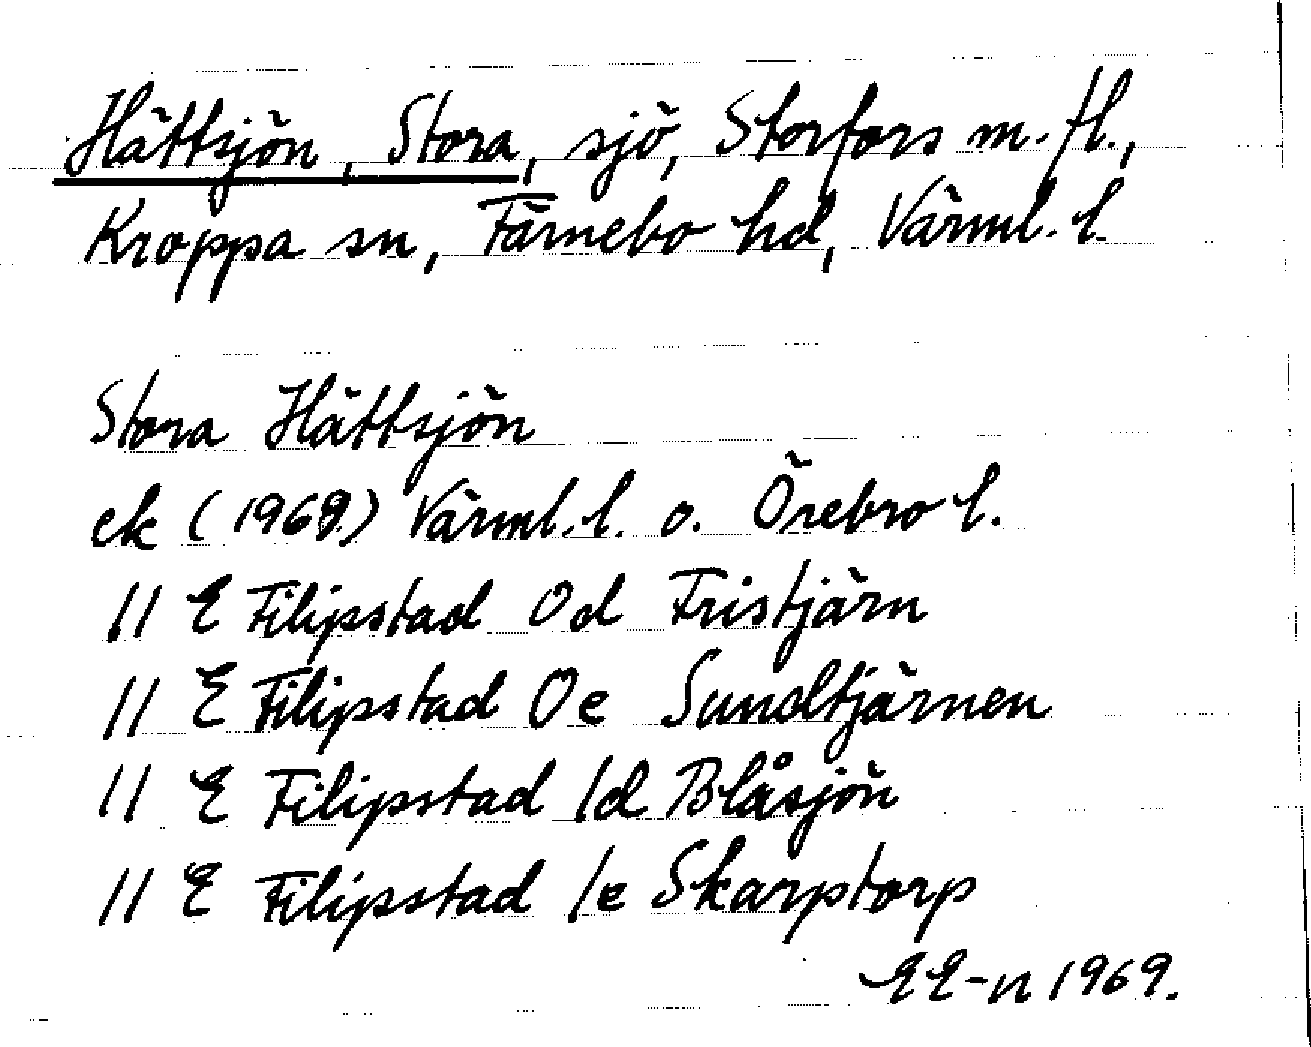 Hättsjön, Stora, sjö, Storfors m. fl.,
Kroppa sn, Färnebo hd, Värml. l.
Stora Hättsjön
ek (1969) Värml. l. o. Örebro l.
11 E Filipstad 0d Fristjärn
11 E Filipstad 0e Sundtjärnen
11 E Filipstad 1d Blåsjön
11 E Filipstad 1e Skarptorp
EE-n 1969.